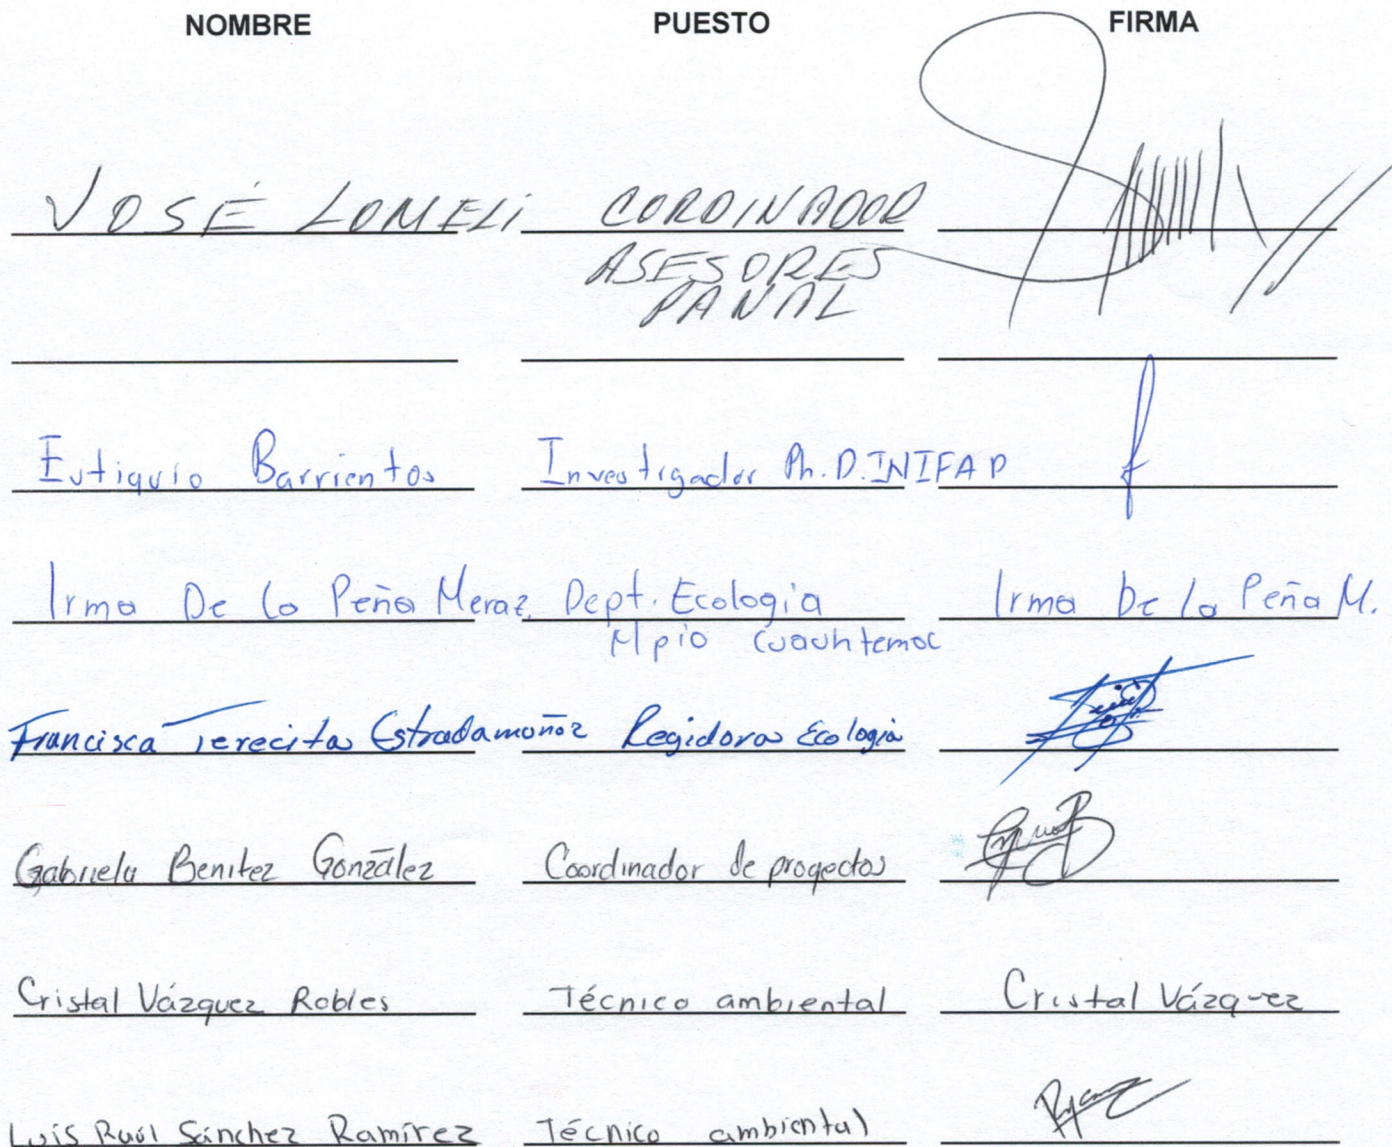 NOMBRE PUESTO FIRMA
JOSÉ LOMELI CORDINADOR
ASESORES
PANAL
Eutiquio Barrientos Investigador Ph.D. INIFAP
Irma De la Peña Meraz, Dept. Ecologia Irma De la Peña M.
Mpio Cuauhtemoc
Francisca Terecita Estrada muñoz Regidora Ecologia
Gabriela Benitez González Coordinador de proyectos
Cristal Vázquez Robles Técnico ambiental Cristal Vázquez
Luis Raúl Sánchez Ramírez Técnico ambiental